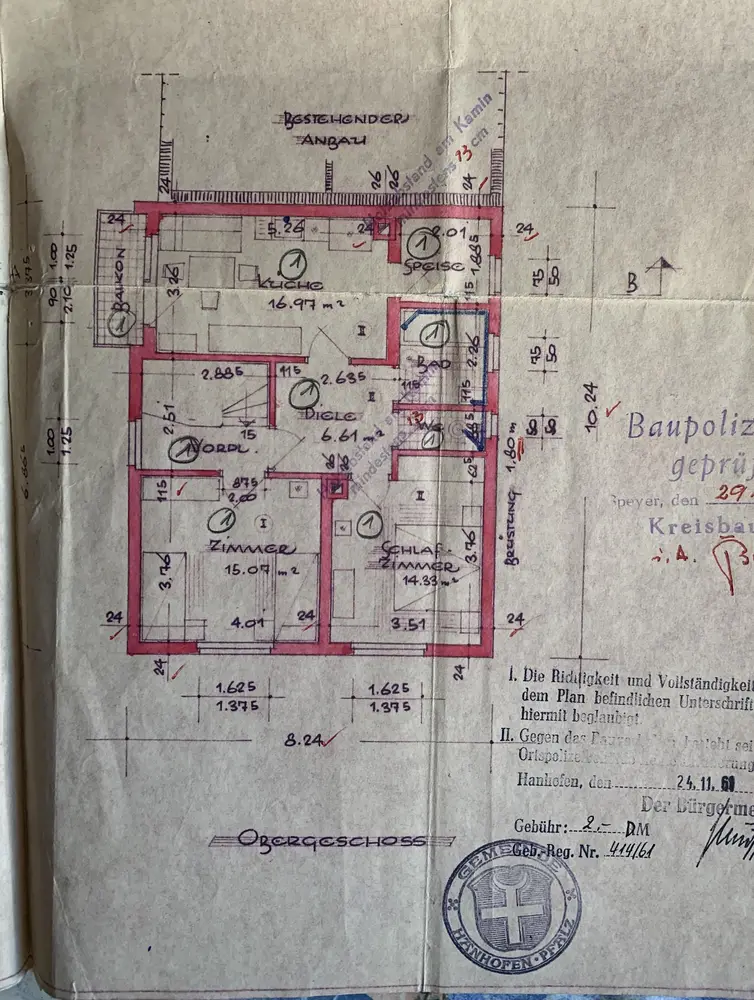 BESTEHENDER
ANBAU
Mindestabstand am Kamin
mindestens 13 cm
24
26
26
24
24
5.26
24
2.01
24
1
1
BALKON
KÜCHE
SPEISE
1.885
1.00
1.25
90
2.10
3.26
16.97 m²
115
75
50
B
I
1
1
BAD
2.26
75
50
2.885
2.635
115
115
1
DIELE
I
10.24
2.51
6.61 m²
WC
1
1.00
1.25
15
1
VORPL.
26
26
625
1.80 m
BRÜSTUNG
115
875
2.00
I
1
I
1
ZIMMER
15.07 m²
SCHLAF-
ZIMMER
14.33 m²
3.76
3.76
24
4.01
24
3.51
24
24
24
1.625
1.375
1.625
1.375
8.24
OBERGESCHOSS
Baupoliz
geprü
Speyer, den 29
Kreisbau
i. A.
I. Die Richtigkeit und Vollständigkeit
dem Plan befindlichen Unterschrift
hiermit beglaubigt.
II. Gegen das
Hanhofen, den 24.11.60
Der Bürgerme
Gebühr: 2.- DM
Geb.-Reg. Nr. 414/61
GEMEINDE
HANHOFEN · PFALZ